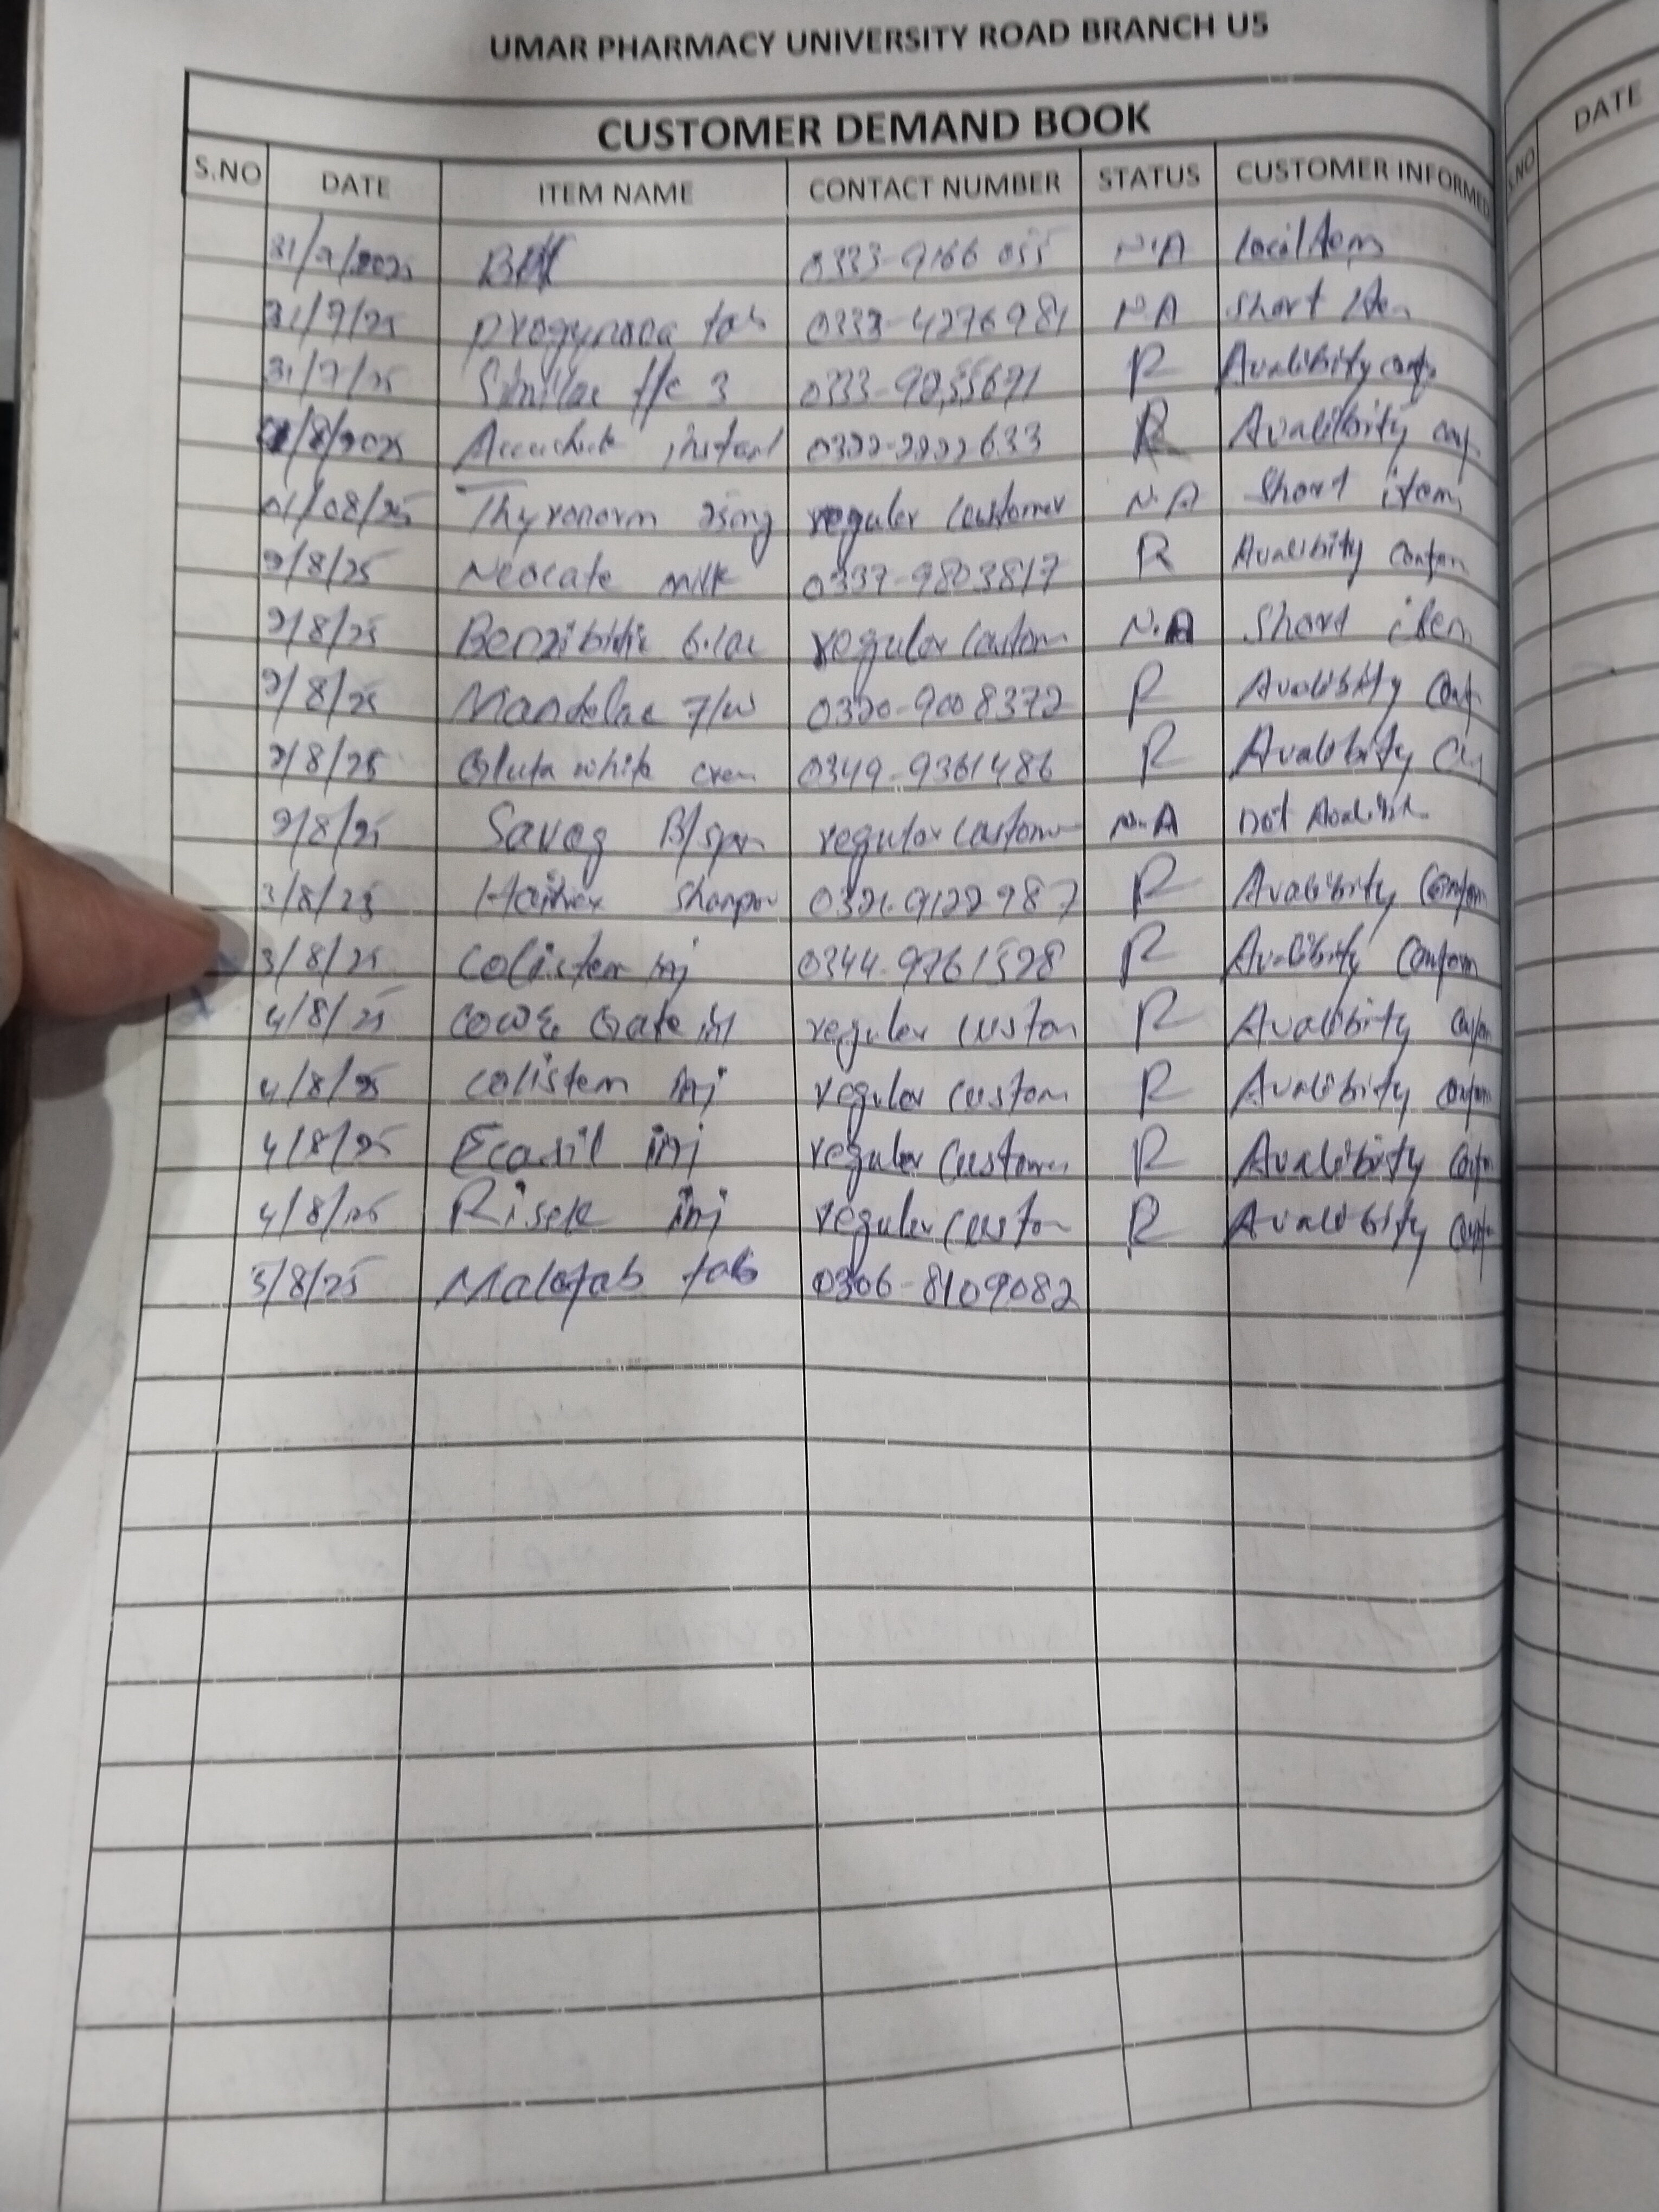 UMAR PHARMACY UNIVERSITY ROAD BRANCH U5
CUSTOMER DEMAND BOOK
S.NO DATE ITEM NAME CONTACT NUMBER STATUS CUSTOMER INFORMED
31/7/2025 N.A local item
31/7/25 progynova tab 0333-4276981 N A short
31/7/25 Similac f/c 3 0333-9255671 R Avalibity
/8/2025 Accuchek instant 0322-2222633 R Avalibity
01/08/25 Thyronorm 25mg regular customer N.A short item
2/8/25 Neocate milk 0337-9803817 R Avalibity
2/8/25 6.lac regular custom N.A short item
2/8/25 Mandelac F/W 0320-9008372 R Avalibity
2/8/25 Gluta white crem 0349-9361486 R Avalibity
2/8/25 B/spr regular custome N.A not
3/8/25 shampoo 0321-9122987 R Avalibity
3/8/25 Colisten inj 0344-9761528 R Avalibity
4/8/25 cow& Gate regular custom R Avalibity
4/8/25 colistem inj regular custom R Avalibity
4/8/25 inj regular customer R Avalibity
4/8/25 Risek inj regular custom R Avalibity
5/8/25 Malofab tab 0306-8109082
S.NO DATE